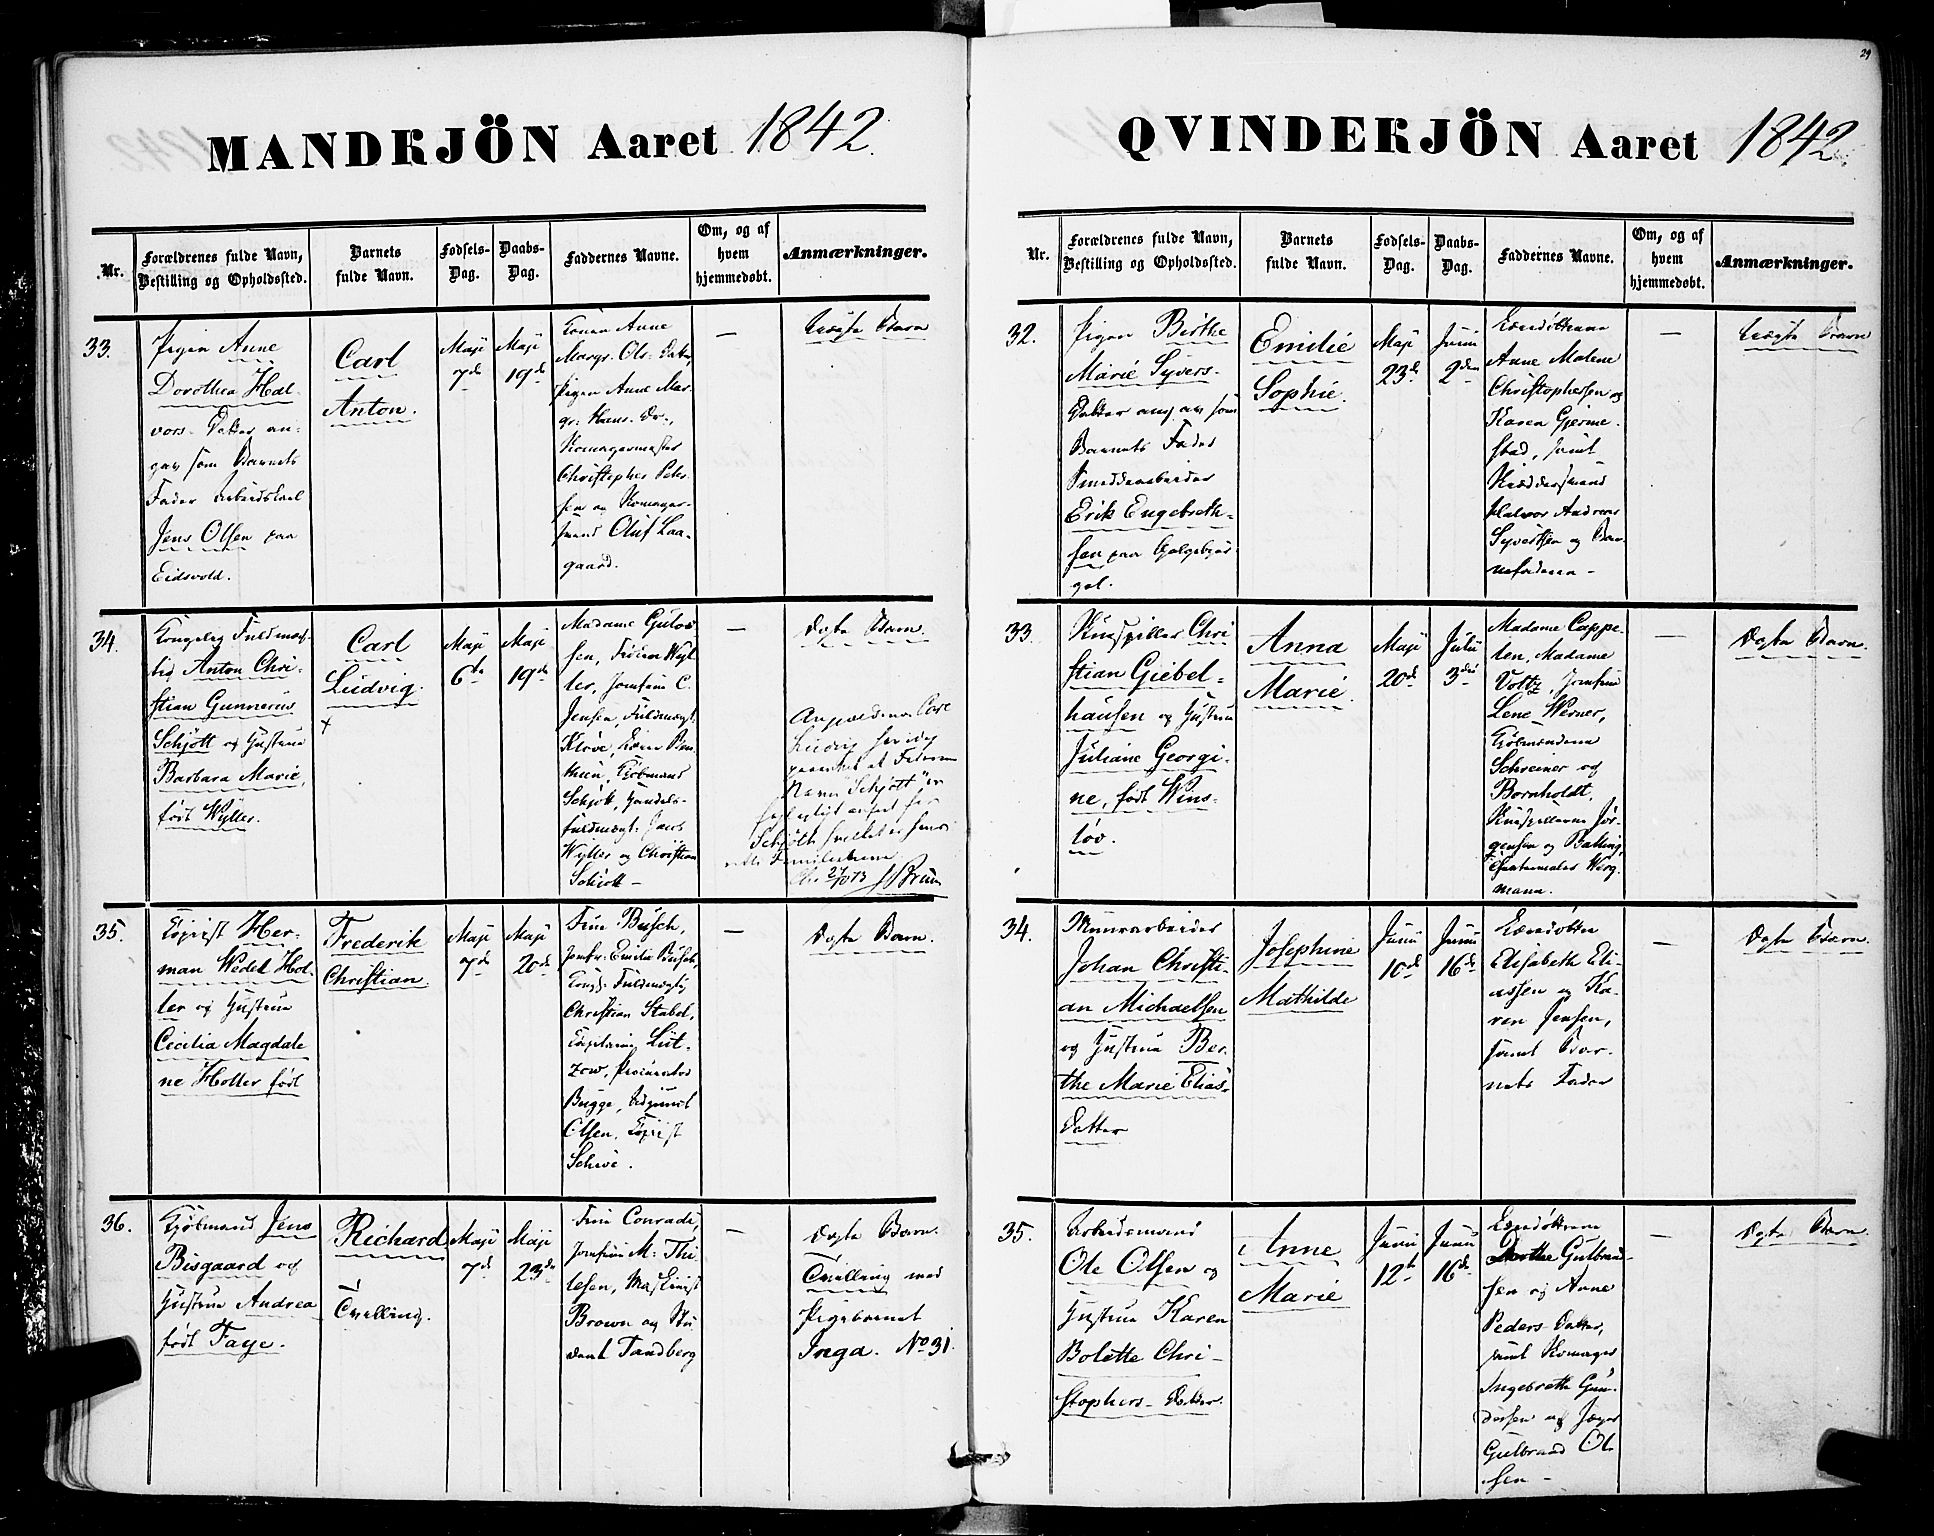 29
MANDKJÖN Aaret 1842.
Nr.
Forældrenes fulde Navn,
Bestilling og Opholdssted.
Barnets
fulde Navn.
Fødsels-
Dag.
Daabs-
Dag.
Faddernes Navne.
Om, og af
hvem
hjemmedøbt.
Anmærkninger.
33.
Pigen Anne
Dorothea Hal-
vors-Datter an-
gav som Barnets
Fader
Jens Olsen paa
Eidsvold.
Carl
Anton.
Maji
7de
Maji
19de
Konen Anne
Margr. Ols-Datter,
Pigen Anne Mar-
gr. Hans-Dr.,
Christopher Peter-
sen og
Oluf Laa-
gaard.
—
Uægte Barn
34.
Kongelig Fuldmæg-
tig Anton Chri-
stian Gunnerus
Schjött og Hustrue
Barbara Marie,
født Wyller.
Carl
Ludvig.
+
Maji
6te
Maji
19de
Madame Gulov-
sen, Frøken Wyl-
ler, Jomfrue C.
Jensen, Fuldmægt.
Klöve,
Kjøbmand
Schjött, Handels-
fuldmægt. Jacob
Wyller og Christian
Schjött —
—
Ægte Barn.
Carl
Ludvig
Navn "Schjött" er
Schjöth
35.
Copiist Her-
man Wedel Hol-
ter og Hustrue
Cecilia Magdale
ne Holter født
Frederik
Christian.
Maji
7de
Maji
20de
Frue Busch,
Jomfr. Emilie Busch,
Kongl. Fuldmægtig
Christian Stabel,
Capitaine Lüt-
zow, Procurator
Bugge,
Olsen, Copiist
—
Ægte Barn.
36.
Kjøbmand Jens
Bisgaard og
Hustrue Andrea
født Faye.
Richard
Tvilling.
Maji
7de
Maji
23de
Frue Conradi,
Jomfrue M. Thi-
lesen, Maskinist
Brown og Stu-
dent Tandberg
—
Ægte Barn.
Tvilling med
Pigebarnet
Inga. No 31.
QVINDEKJÖN Aaret 1842.
Nr.
Forældrenes fulde Navn,
Bestilling og Opholdssted.
Barnets
fulde Navn.
Fødsels-
Dag.
Daabs-
Dag.
Faddernes Navne.
Om, og af
hvem
hjemmedøbt.
Anmærkninger.
32.
Pigen Birthe
Marie Syvers-
Datter angav som
Barnets Fader
Smeddearbeider
Erik Engebreth-
sen paa Galgebjer-
get.
Emilie
Sophie.
Maji
23de
Junii
2den
Anne Malene
Christophersen og
Karen Gjerme-
stad, samt
Halvor Andreas
Syvertsen og Bar-
nefaderen —
—
Uægte Barn
33.
Skuespiller Chri-
stian Giebel-
hausen og Hustrue
Juliane Georgi-
ne, født Wins-
löv.
Anna
Marie.
Maji
20de
Julii
3die
Madame Cappe-
len, Madame
Voltz, Jomfrue
Lene Werner,
Kjøbmændene
Schreiner og
Bornholdt,
Skuespillerne Jör-
gensen og Balling,
Theatermaler Wig-
mann.
—
Ægte Barn.
34.
Muurarbeider
Johan Christi-
an Michaelsen
og Hustrue Ber-
the Marie Elias-
Datter
Josephine
Mathilde
Junii
10de
Junii
16de
Elisabeth Eli-
assen og Ka-
ren Jensen,
samt Bar-
nets Fader
—
Ægte Barn.
35.
Arbeidsmand
Ole Olsen og
Hustrue Karen
Bolette Chri-
stophers-Datter.
Anne
Marie
Junii
12te
Junii
16de
Dorthe Gulbrand-
sen og Anne
Peders-Datter,
samt
Ingebreth Gun-
dersen og
Gulbrand Ol-
sen —
—
Ægte Barn.